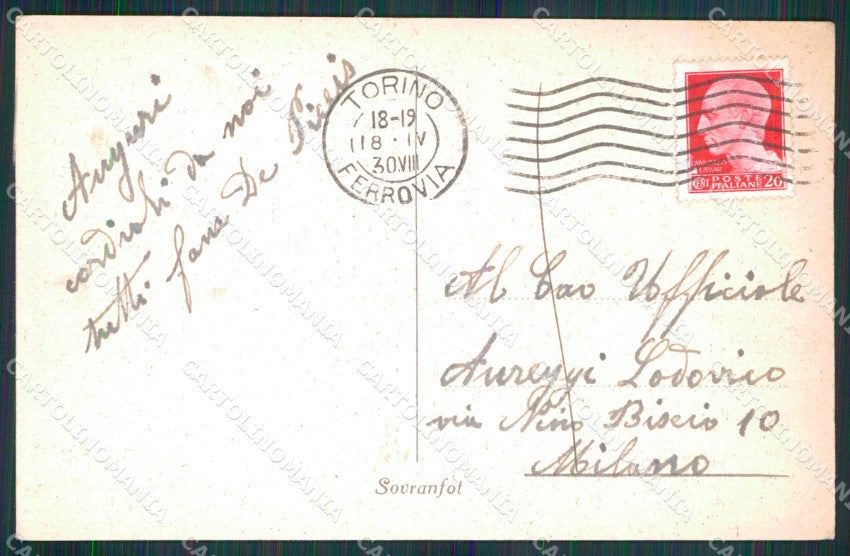 Auguri
cordiali da noi
tutti fam De Pieris
TORINO
18-19
18 · IV
30VIII
FERROVIA
CAESAR
CENT POSTE ITALIANE 20
Al Cav Ufficiale
Aureggi Lodovico
via Nino Biscio 10
Milano
Sovranfot
CARTOLINOMANIA